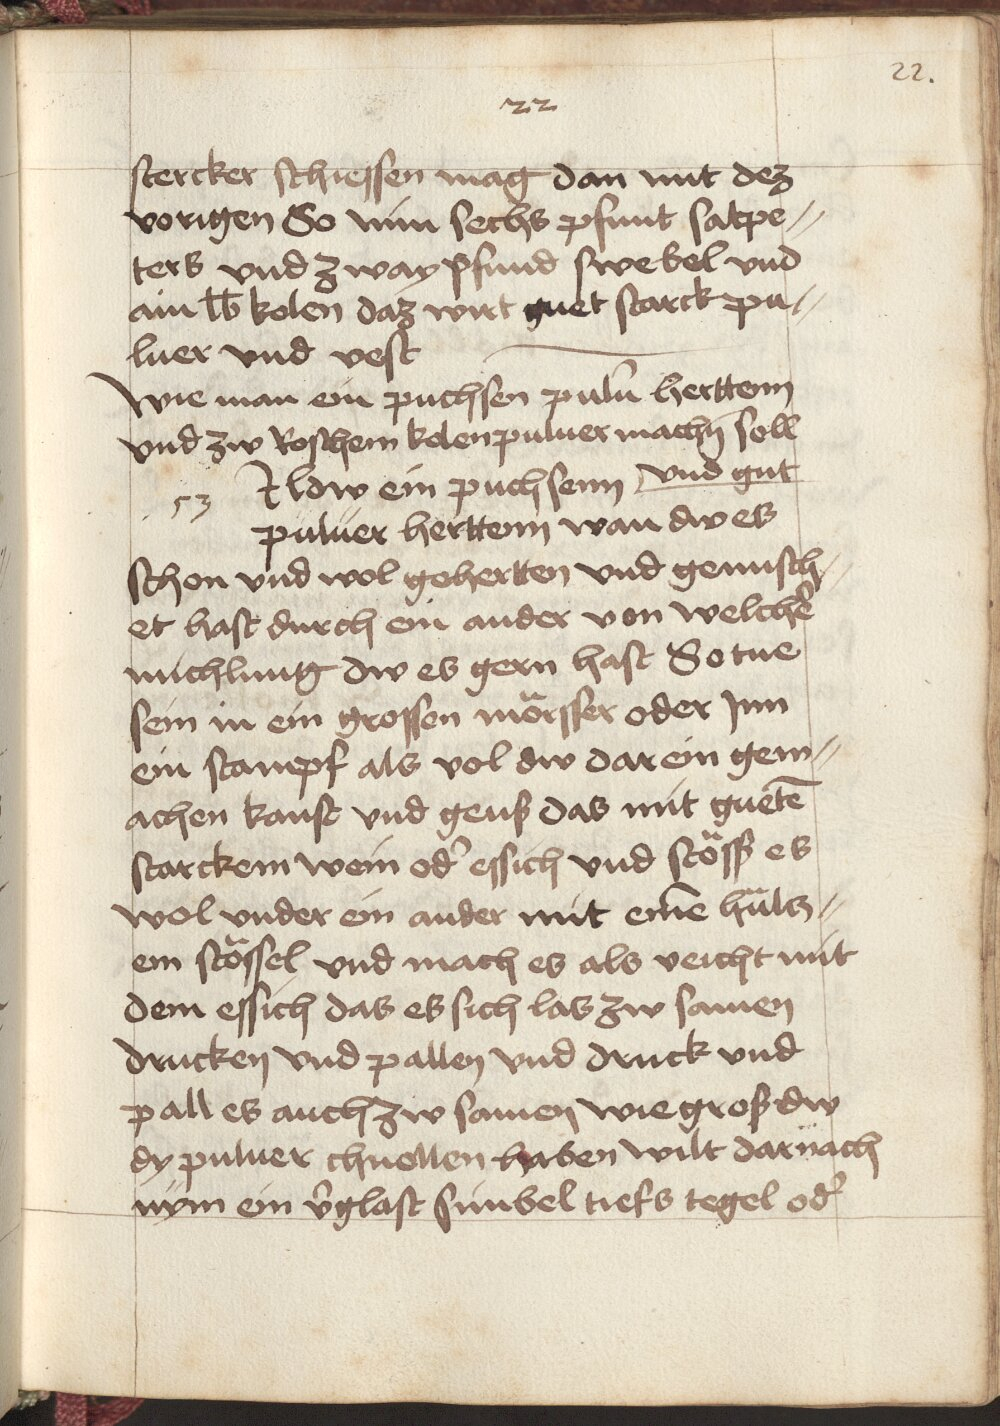 22.
22
stercker schiessen mag dan mit dez
vorigen So nim sechs pfunt salpe//
ters vnd zway pfund swebel vnd
ain lb kolen daz wirt guet starck pu//
luer vnd vest
Wie man ein puchsen puluer herttenn
vnd zw Roschem kolenpuluer machn̄ soll
53 Wildw ein puchsenn vnd gut
puluer herttenn wan dw es
schon vnd wol gehertten vnd gemisch//
et hast durch ein ander von welcher
michlung dw es gern hast So tue
sein in ein grossen mörsser oder Jnn
ein stampf als vol dw dar ein gem//
achen kanst vnd geus das mit gueten̄
starckem wein od' essich vnd stöss es
wol vnder ein ander mit eine hüls//
em stössel vnd mach es als veicht mit
dem essich das es sich las zw samen
drucken vnd pallen vnd druck vnd
pall es auch zw samen wie gros dw
dy puluer chnollen haben wilt darnach
nym ein v'glast sinbel tiefs tegel od'